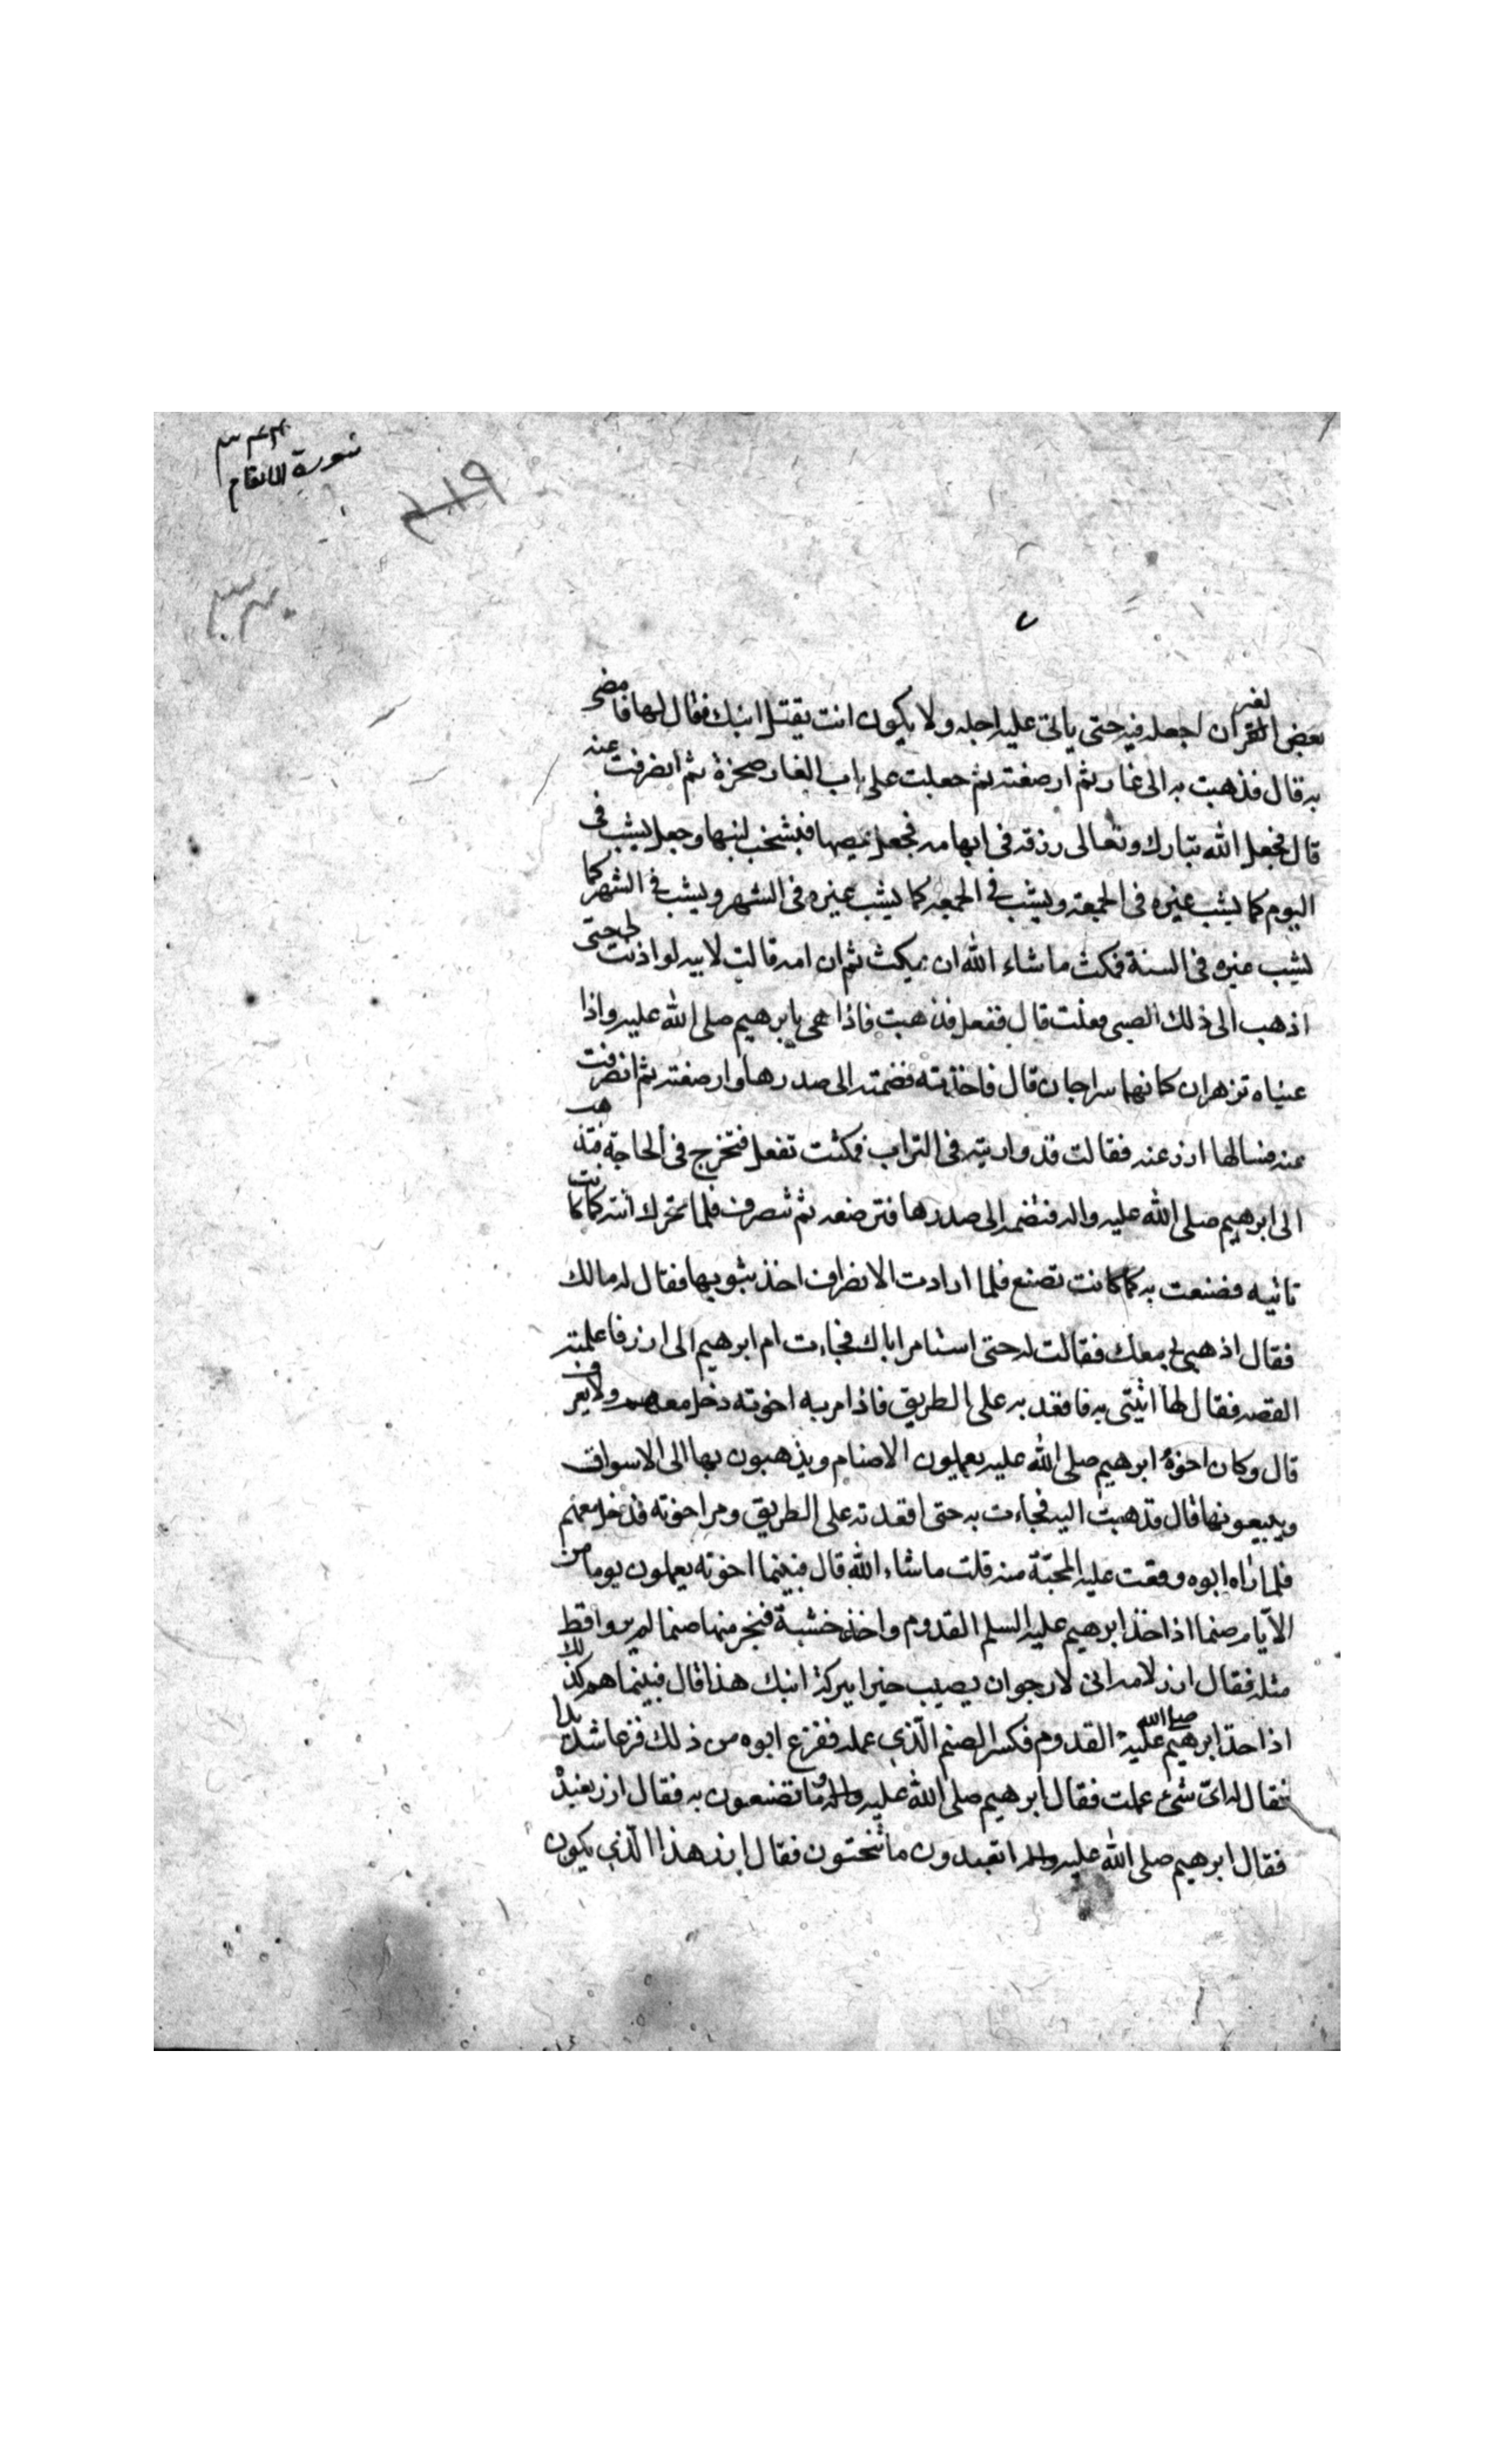 سورة الانعام
بعض الغيران اجعله فيه حتى ياتى عليه اجله ولا يكون انت يقتل ابنك فقال لها فامضى
به قال فذهبت به الى غار ثم ارضعته ثم جعلت على باب الغار صخرة ثم انصرفت عنه
قال فجعل الله تبارك وتعالى رزقه فى ابهامه فجعل يمصها فيشخب لبنها وجعل يشب فى
اليوم كما يشب غيره فى الجمعة ويشب فى الجمعه كما يشب غيره فى الشهر ويشب فى الشهر كما
يشب غيره فى السنة فمكث ما شاء الله ان يمكث ثم ان امه قالت لابيه لو اذنت لى حتى
اذهب الى ذلك الصبى فعلت قال ففعل فذهبت فاذا هى بابرهيم صلى الله عليه واذا
عيناه تزهران كانهما سراجان قال فاخذته فضمته الى صدرها وارضعته ثم انصرفت
عنه فسالها ازر عنه فقالت قد واريته فى التراب فمكثت تفعل فتخرج فى الحاجة فتذهب
الى ابرهيم صلى الله عليه واله فتضمه الى صدرها فترضعه ثم تنصرف فلما تحرك اتته كما كانت
تاتيه فصنعت به كما كانت تصنع فلما ارادت الانصراف اخذ بثوبها فقال له مالك
فقال اذهبى بى معك فقالت له حتى استامر اباك فجاءت ام ابرهيم الى ازر فاعلمته
القصه فقال لها ائتينى به فاقعديه على الطريق فاذا مر به اخوته دخل معهم ولا يعرف
قال وكان اخوة ابرهيم صلى الله عليه يعملون الاصنام ويذهبون بها الى الاسواق
ويبيعونها قال فذهبت اليه فجاءت به حتى اقعدته على الطريق ومر اخوته فدخل معهم
فلما راه ابوه وقعت عليه المحبة منه قلت ما شاء الله قال فبينما اخوته يعملون يوما من
الايام صنما اذ اخذ ابرهيم عليه السلم القدوم واخذ خشبة فنجر منها صنما لم يروا قط
مثله فقال ازر لامه انى لارجو ان يصيب خيرا ببركة ابنك هذا قال فبينما هم كذلك
اذا اخذ ابرهيم صلى الله عليه القدوم فكسر الصنم الذى عمله ففزع ابوه من ذلك فزعا شديدا
فقال له اى شىء عملت فقال ابرهيم صلى الله عليه واله وما تصنعون به فقال ازر نعبده
فقال ابرهيم صلى الله عليه واله اتعبدون ما تنحتون فقال ازر هذا الذى يكون